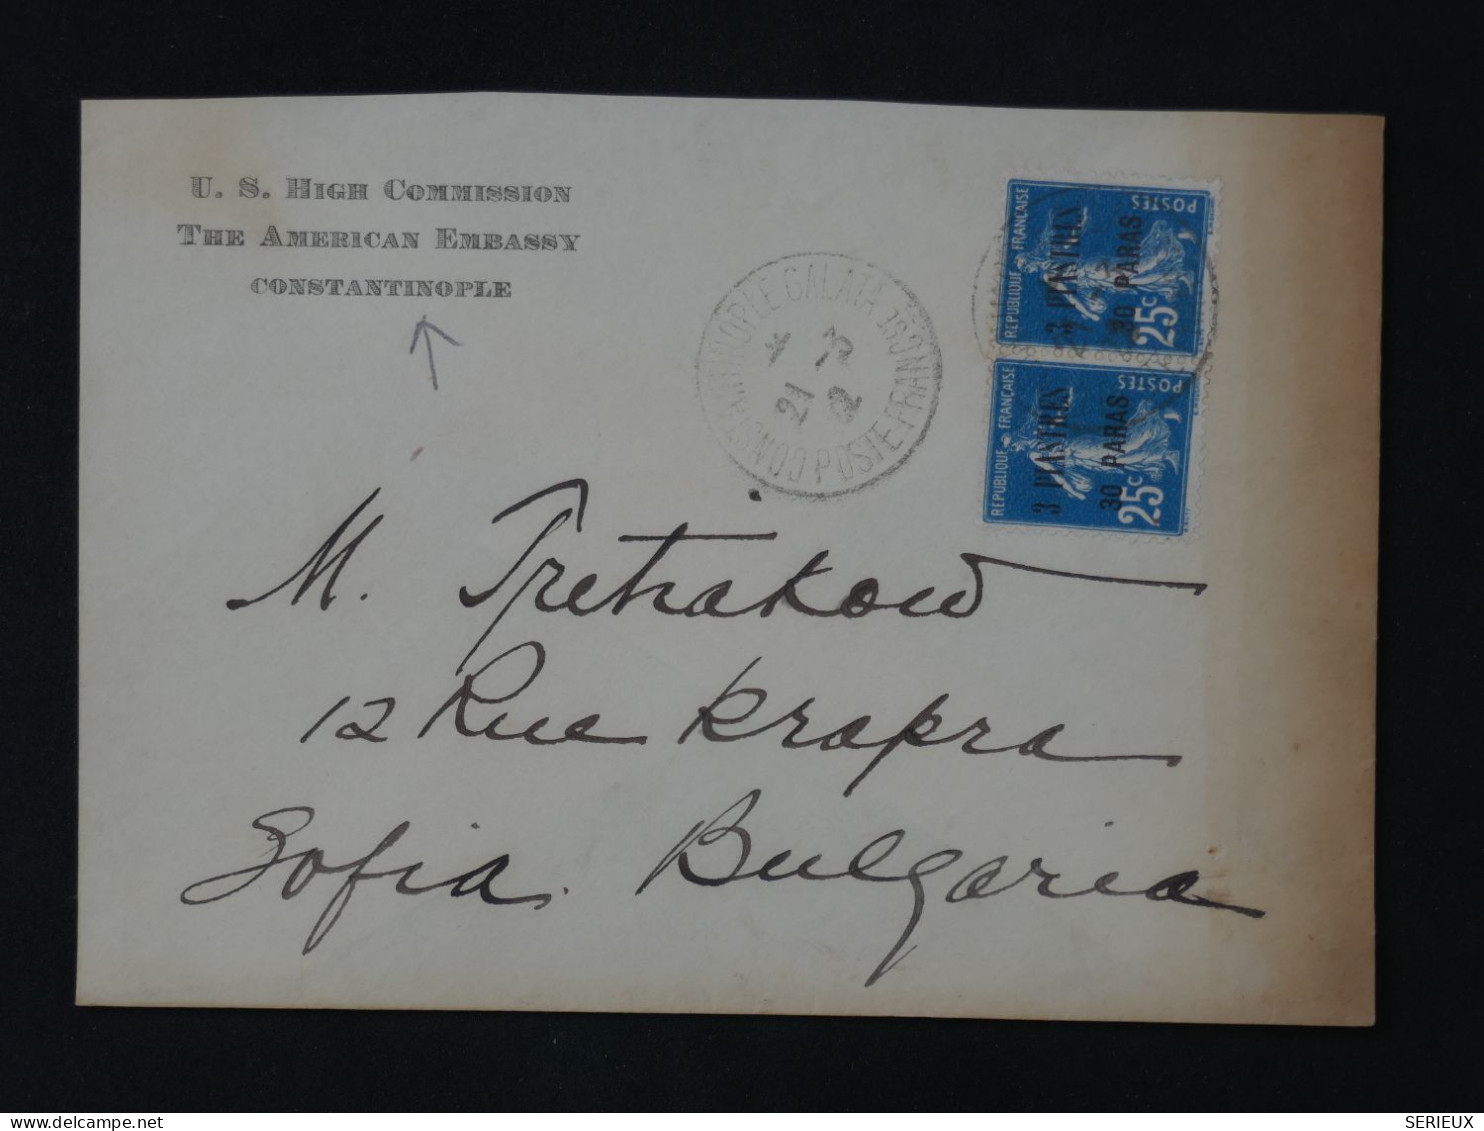 U. S. HIGH COMMISSION
THE AMERICAN EMBASSY
CONSTANTINOPLE
CONSTANTINOPLE GALATA
POSTE FRANÇSE
21 -3
2
REPUBLIQUE FRANÇAISE
POSTES
3 PIASTRES
30 PARAS
25c
REPUBLIQUE FRANÇAISE
POSTES
3 PIASTRES
30 PARAS
25c
M. Tretiakow
12 Rue Krapra
Sofia. Bulgaria
SERIEUX